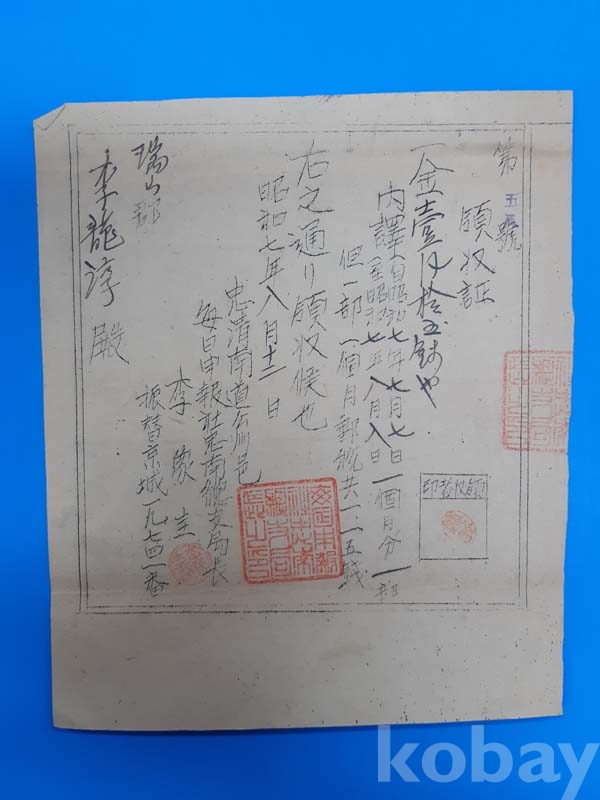 第五號
領収証
一金壹円拾五銭也
内譯 自昭和七年七月七日 至昭和七年八月八日 一個月分一部
但一部一個月郵税共一、一五錢
右之通リ領収候也
昭和七年八月十二日
忠淸南道公州邑
每日申報社忠南總支局長
李
振替京城一九七四一番
瑞山郡
李龍淳殿
領収者印
kobay